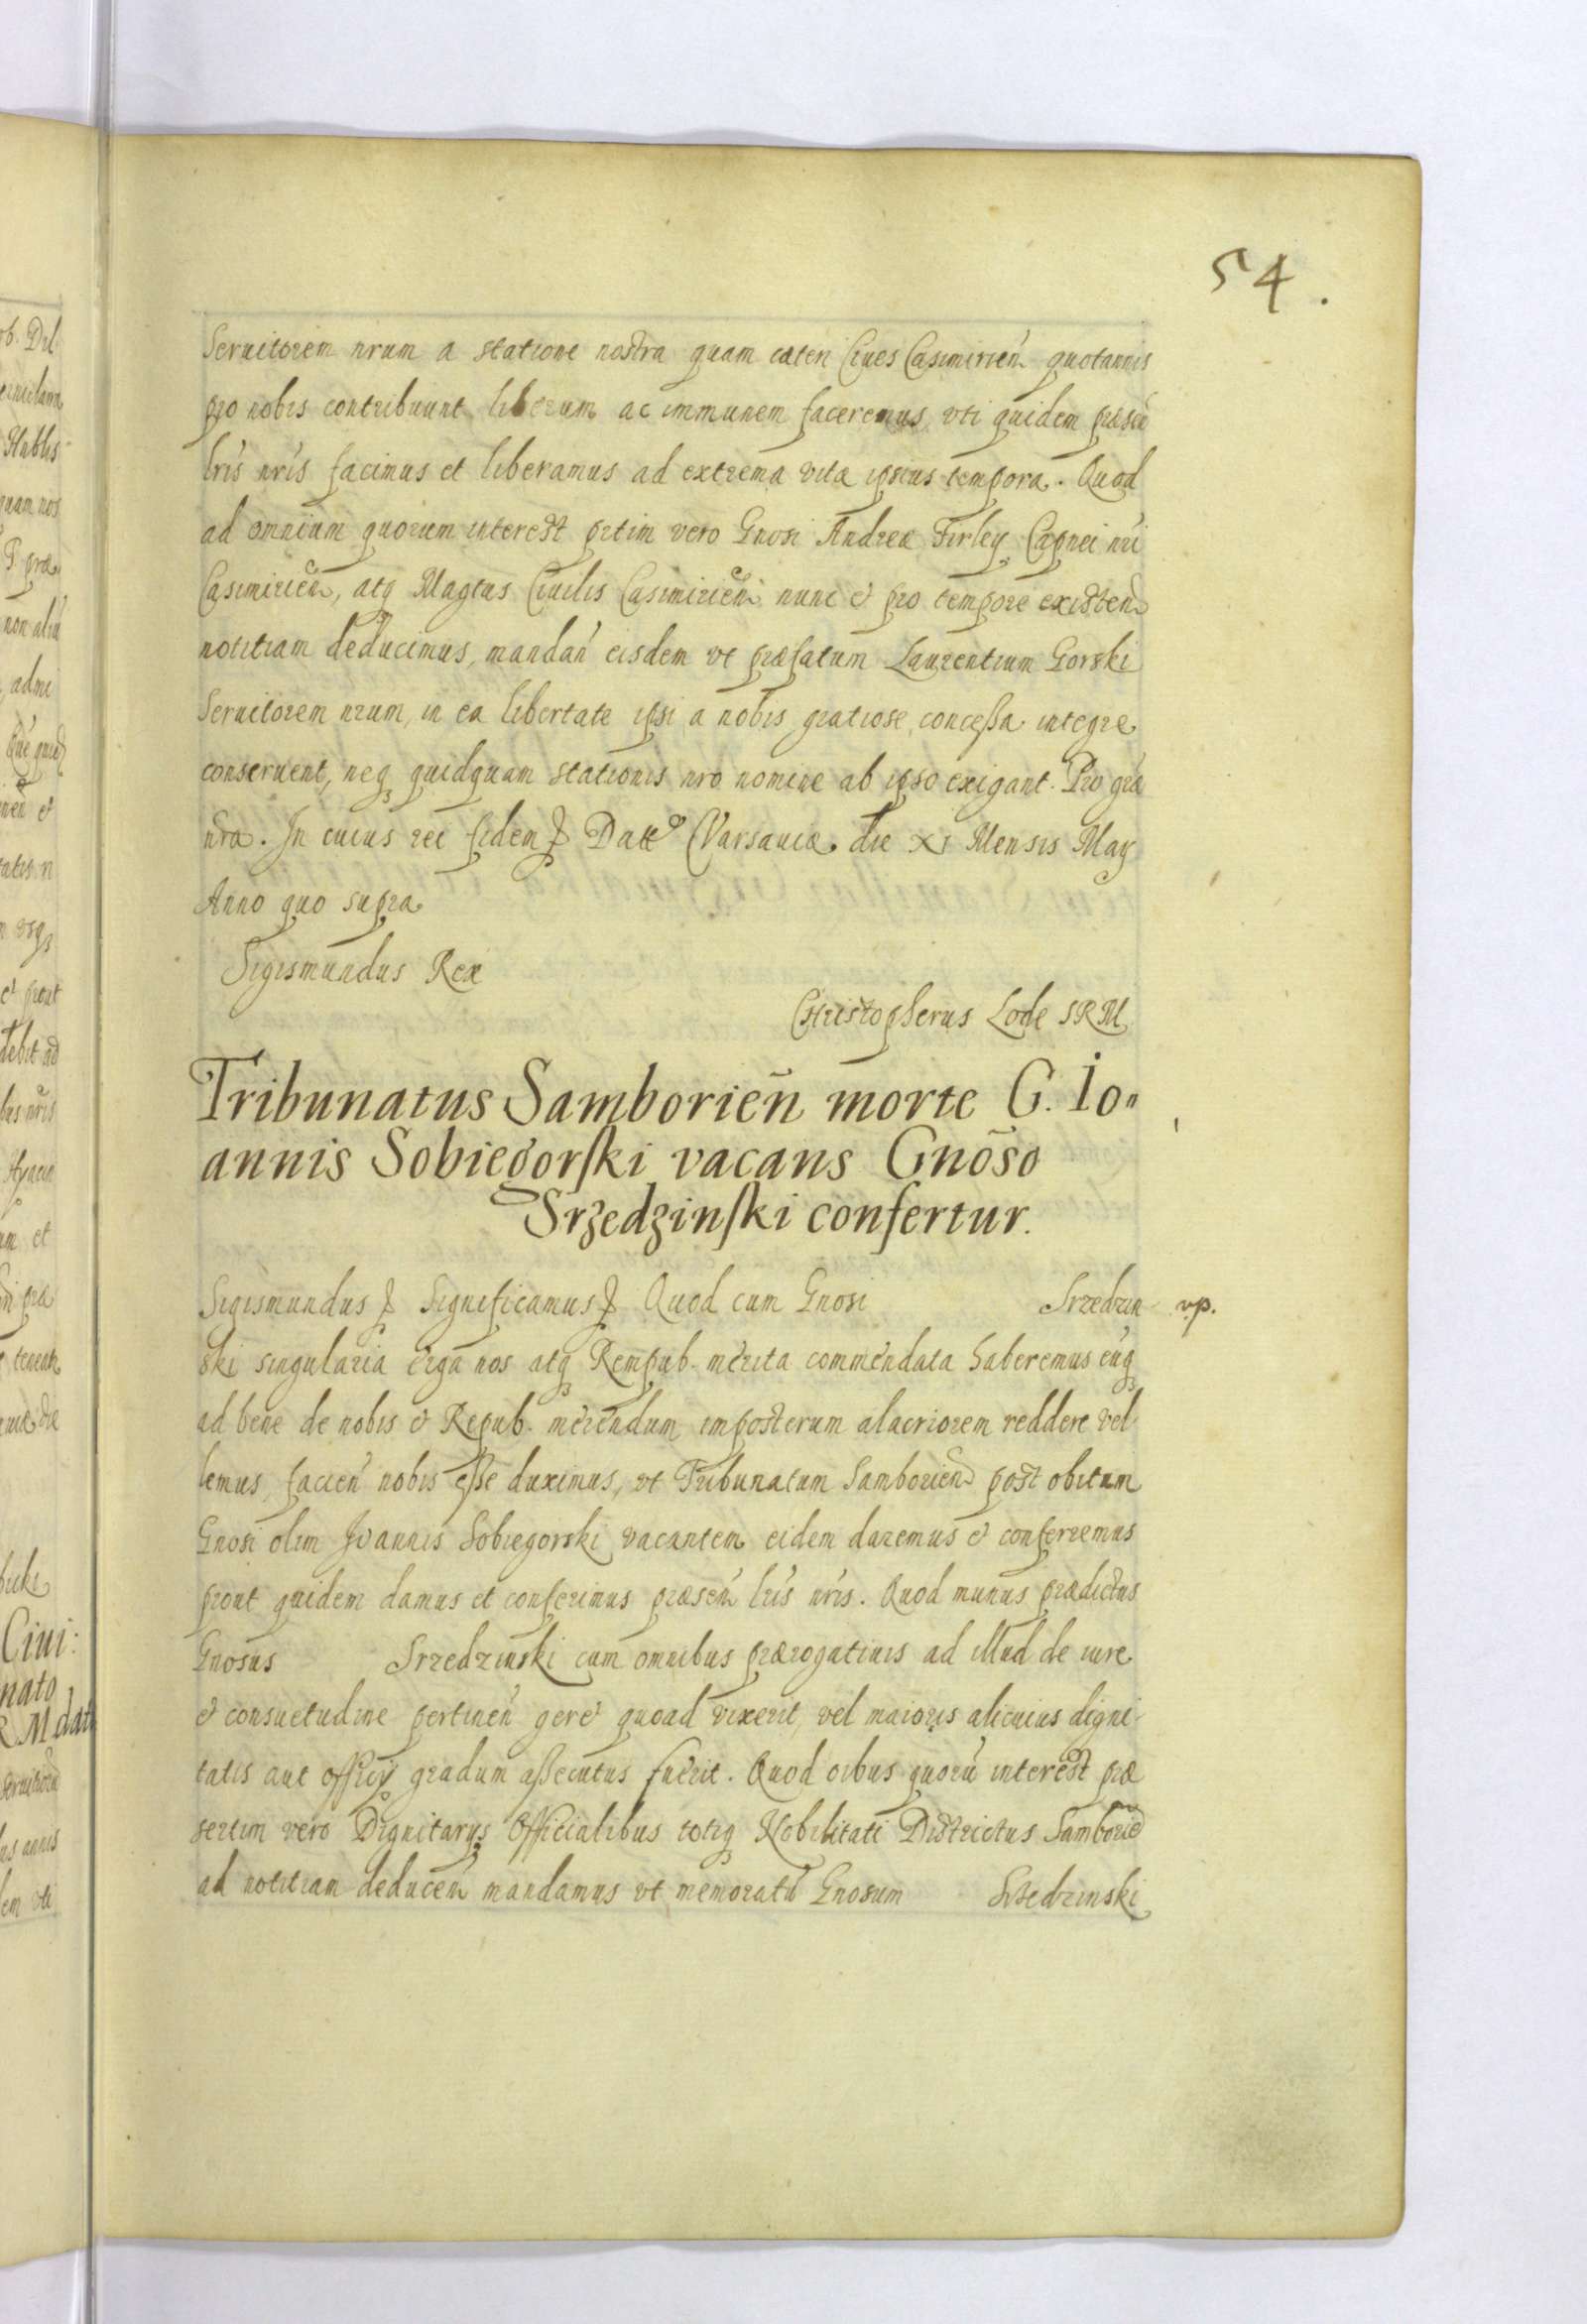 54.
Seruitorem nrum a statione nostra quam cæteri Ciues Casimirien̄ quotannis
pro nobis contribuunt liberum ac immunem faceremus, vti quidem præsen̄
lris nris facimus et liberamus ad extrema vitæ ipsius tempora. Quod
ad omnium quorum interest prtim vero Gnosi Andreæ Firley Capnei nri
Casimirien̄, atq Magtus Ciuilis Casimirien̄ nunc & pro tempore existen̄
notitiam deducimus, mandan̄ eisdem vt præfatum Laurentium Gorski
Seruitorem nrum, in ea libertate ipsi a nobis gratiose concessa integre
conseruent, neq quidquam stationis nro nomine ab ipso exigant. Pro grã
nrã. In cuius rei fidem Datt Varsauiæ die XI Mensis May
Anno quo supra
Sigismundus Rex
Christopherus Lode SRM
Tribunatus Samborien̄ morte G. Io„
annis Sobiegorski vacans Gnōso
Srzedzinski confertur.
Sigismundus Significamus Quod cum Gnosi Srzedzin vp.
ski singularia erga nos atq Rempub. merita commendata haberemus eu̅q
ad bene de nobis & Repub. merendum imposterum alacriorem reddere vel-
lemus, facien̄ nobis esse duximus, vt Tribunatum Samborien̄ post obitum
Gnosi olim Joannis Sobiegorski vacantem eidem daremus & conferremus
prout quidem damus et conferimus præsen̄ lris nris. Quod munus prædictus
Gnosus Srzedzinski cum omnibus prærogatiuis ad illud de iure
& consuetudine pertinen̄ geret quoad vixerit, vel maioris alicuius digni-
tatis aut officij gradum assecutus fuerit. Quod oibus quorũ interest præ
sertim vero Dignitarijs Officialibus totiq Nobilitati Districtus Samborien̄
ad notitiam deducen̄ mandamus vt memoratũ Gnosum Srzedzinski